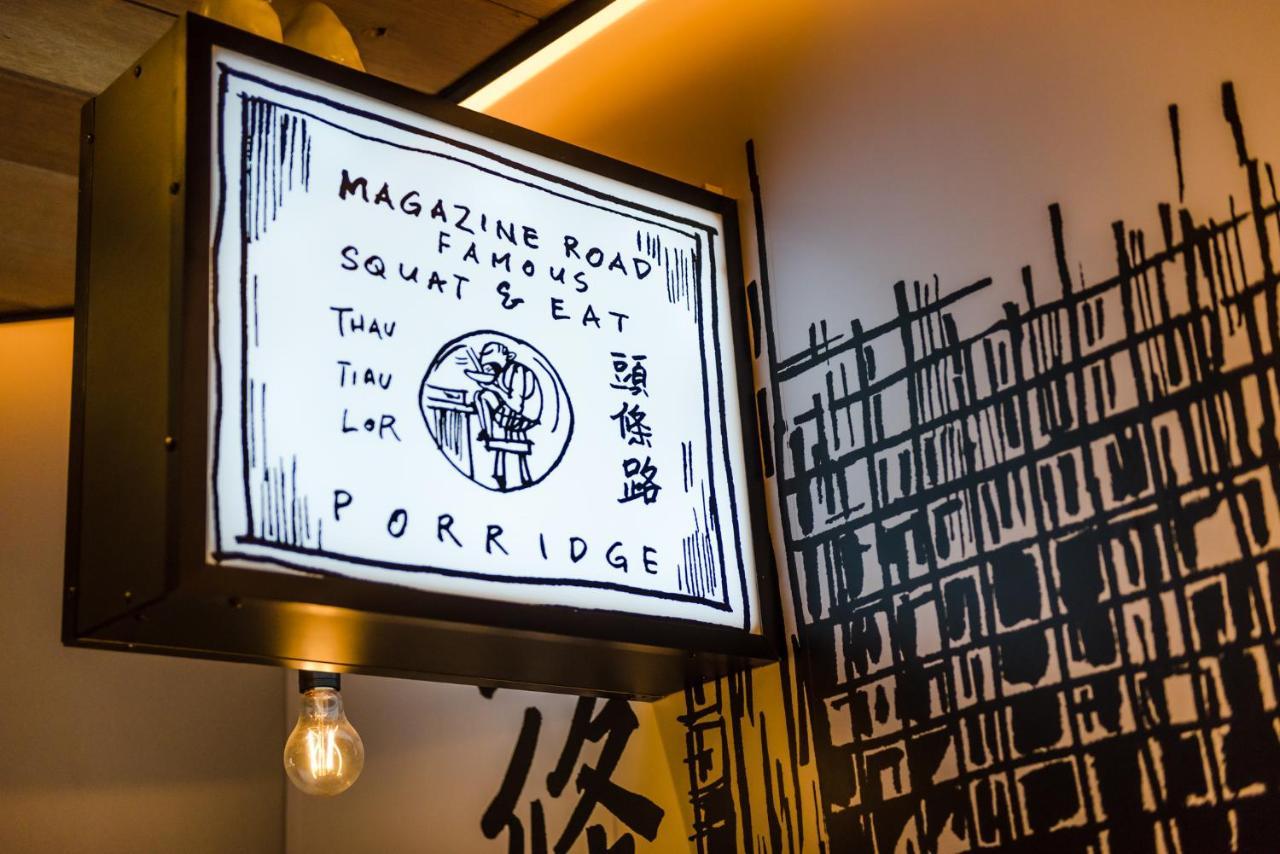 MAGAZINE ROAD
FAMOUS
SQUAT & EAT
THAU
TIAU
LOR
頭
條
路
PORRIDGE
條